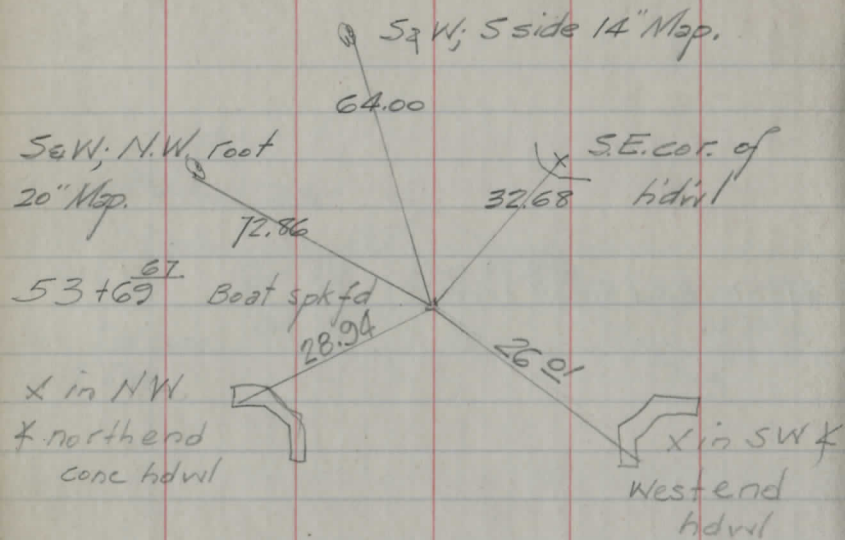 S&W; S side 14" Map.
64.00
S&W; N.W. root
20" Map.
72.86
S.E. cor. of
hdwl
32.68
53+69 67
Boat spk fd
28.94
26.01
X in NW
& north end
conc hdwl
X in SW &
West end
hdwl